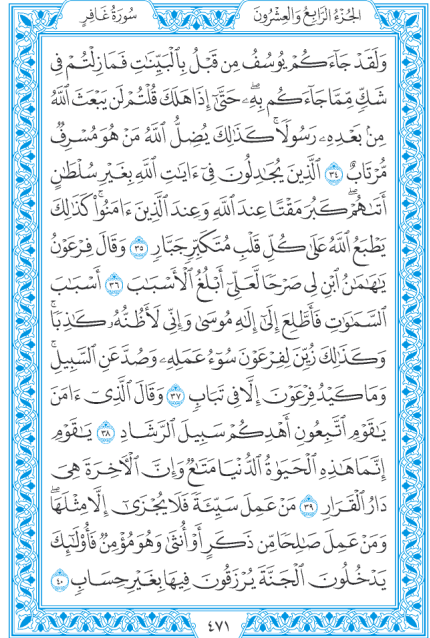 سُورَةُ غَافِرٍ الجُزْءُ الرَّابِعُ وَالعِشْرُونَ
وَلَقَدْ جَآءَكُمْ يُوسُفُ مِن قَبْلُ بِٱلْبَيِّنَٰتِ فَمَا زِلْتُمْ فِى
شَكٍّ مِّمَّا جَآءَكُم بِهِۦۖ حَتَّىٰٓ إِذَا هَلَكَ قُلْتُمْ لَن يَبْعَثَ ٱللَّهُ
مِنۢ بَعْدِهِۦ رَسُولًاۚ كَذَٰلِكَ يُضِلُّ ٱللَّهُ مَنْ هُوَ مُسْرِفٌ
مُّرْتَابٌ ٣٤ ٱلَّذِينَ يُجَٰدِلُونَ فِىٓ ءَايَٰتِ ٱللَّهِ بِغَيْرِ سُلْطَٰنٍ
أَتَىٰهُمْۖ كَبُرَ مَقْتًا عِندَ ٱللَّهِ وَعِندَ ٱلَّذِينَ ءَامَنُوا۟ۚ كَذَٰلِكَ
يَطْبَعُ ٱللَّهُ عَلَىٰ كُلِّ قَلْبِ مُتَكَبِّرٍ جَبَّارٍ ٣٥ وَقَالَ فِرْعَوْنُ
يَٰهَٰمَٰنُ ٱبْنِ لِى صَرْحًا لَّعَلِّىٓ أَبْلُغُ ٱلْأَسْبَٰبَ ٣٦ أَسْبَٰبَ
ٱلسَّمَٰوَٰتِ فَأَطَّلِعَ إِلَىٰٓ إِلَٰهِ مُوسَىٰ وَإِنِّى لَأَظُنُّهُۥ كَٰذِبًاۚ
وَكَذَٰلِكَ زُيِّنَ لِفِرْعَوْنَ سُوٓءُ عَمَلِهِۦ وَصُدَّ عَنِ ٱلسَّبِيلِۚ
وَمَا كَيْدُ فِرْعَوْنَ إِلَّا فِى تَبَابٍ ٣٧ وَقَالَ ٱلَّذِىٓ ءَامَنَ
يَٰقَوْمِ ٱتَّبِعُونِ أَهْدِكُمْ سَبِيلَ ٱلرَّشَادِ ٣٨ يَٰقَوْمِ
إِنَّمَا هَٰذِهِ ٱلْحَيَوٰةُ ٱلدُّنْيَا مَتَٰعٌ وَإِنَّ ٱلْءَاخِرَةَ هِىَ
دَارُ ٱلْقَرَارِ ٣٩ مَنْ عَمِلَ سَيِّئَةً فَلَا يُجْزَىٰٓ إِلَّا مِثْلَهَاۖ
وَمَنْ عَمِلَ صَٰلِحًا مِّن ذَكَرٍ أَوْ أُنثَىٰ وَهُوَ مُؤْمِنٌ فَأُو۟لَٰٓئِكَ
يَدْخُلُونَ ٱلْجَنَّةَ يُرْزَقُونَ فِيهَا بِغَيْرِ حِسَابٍ ٤٠
٤٧١